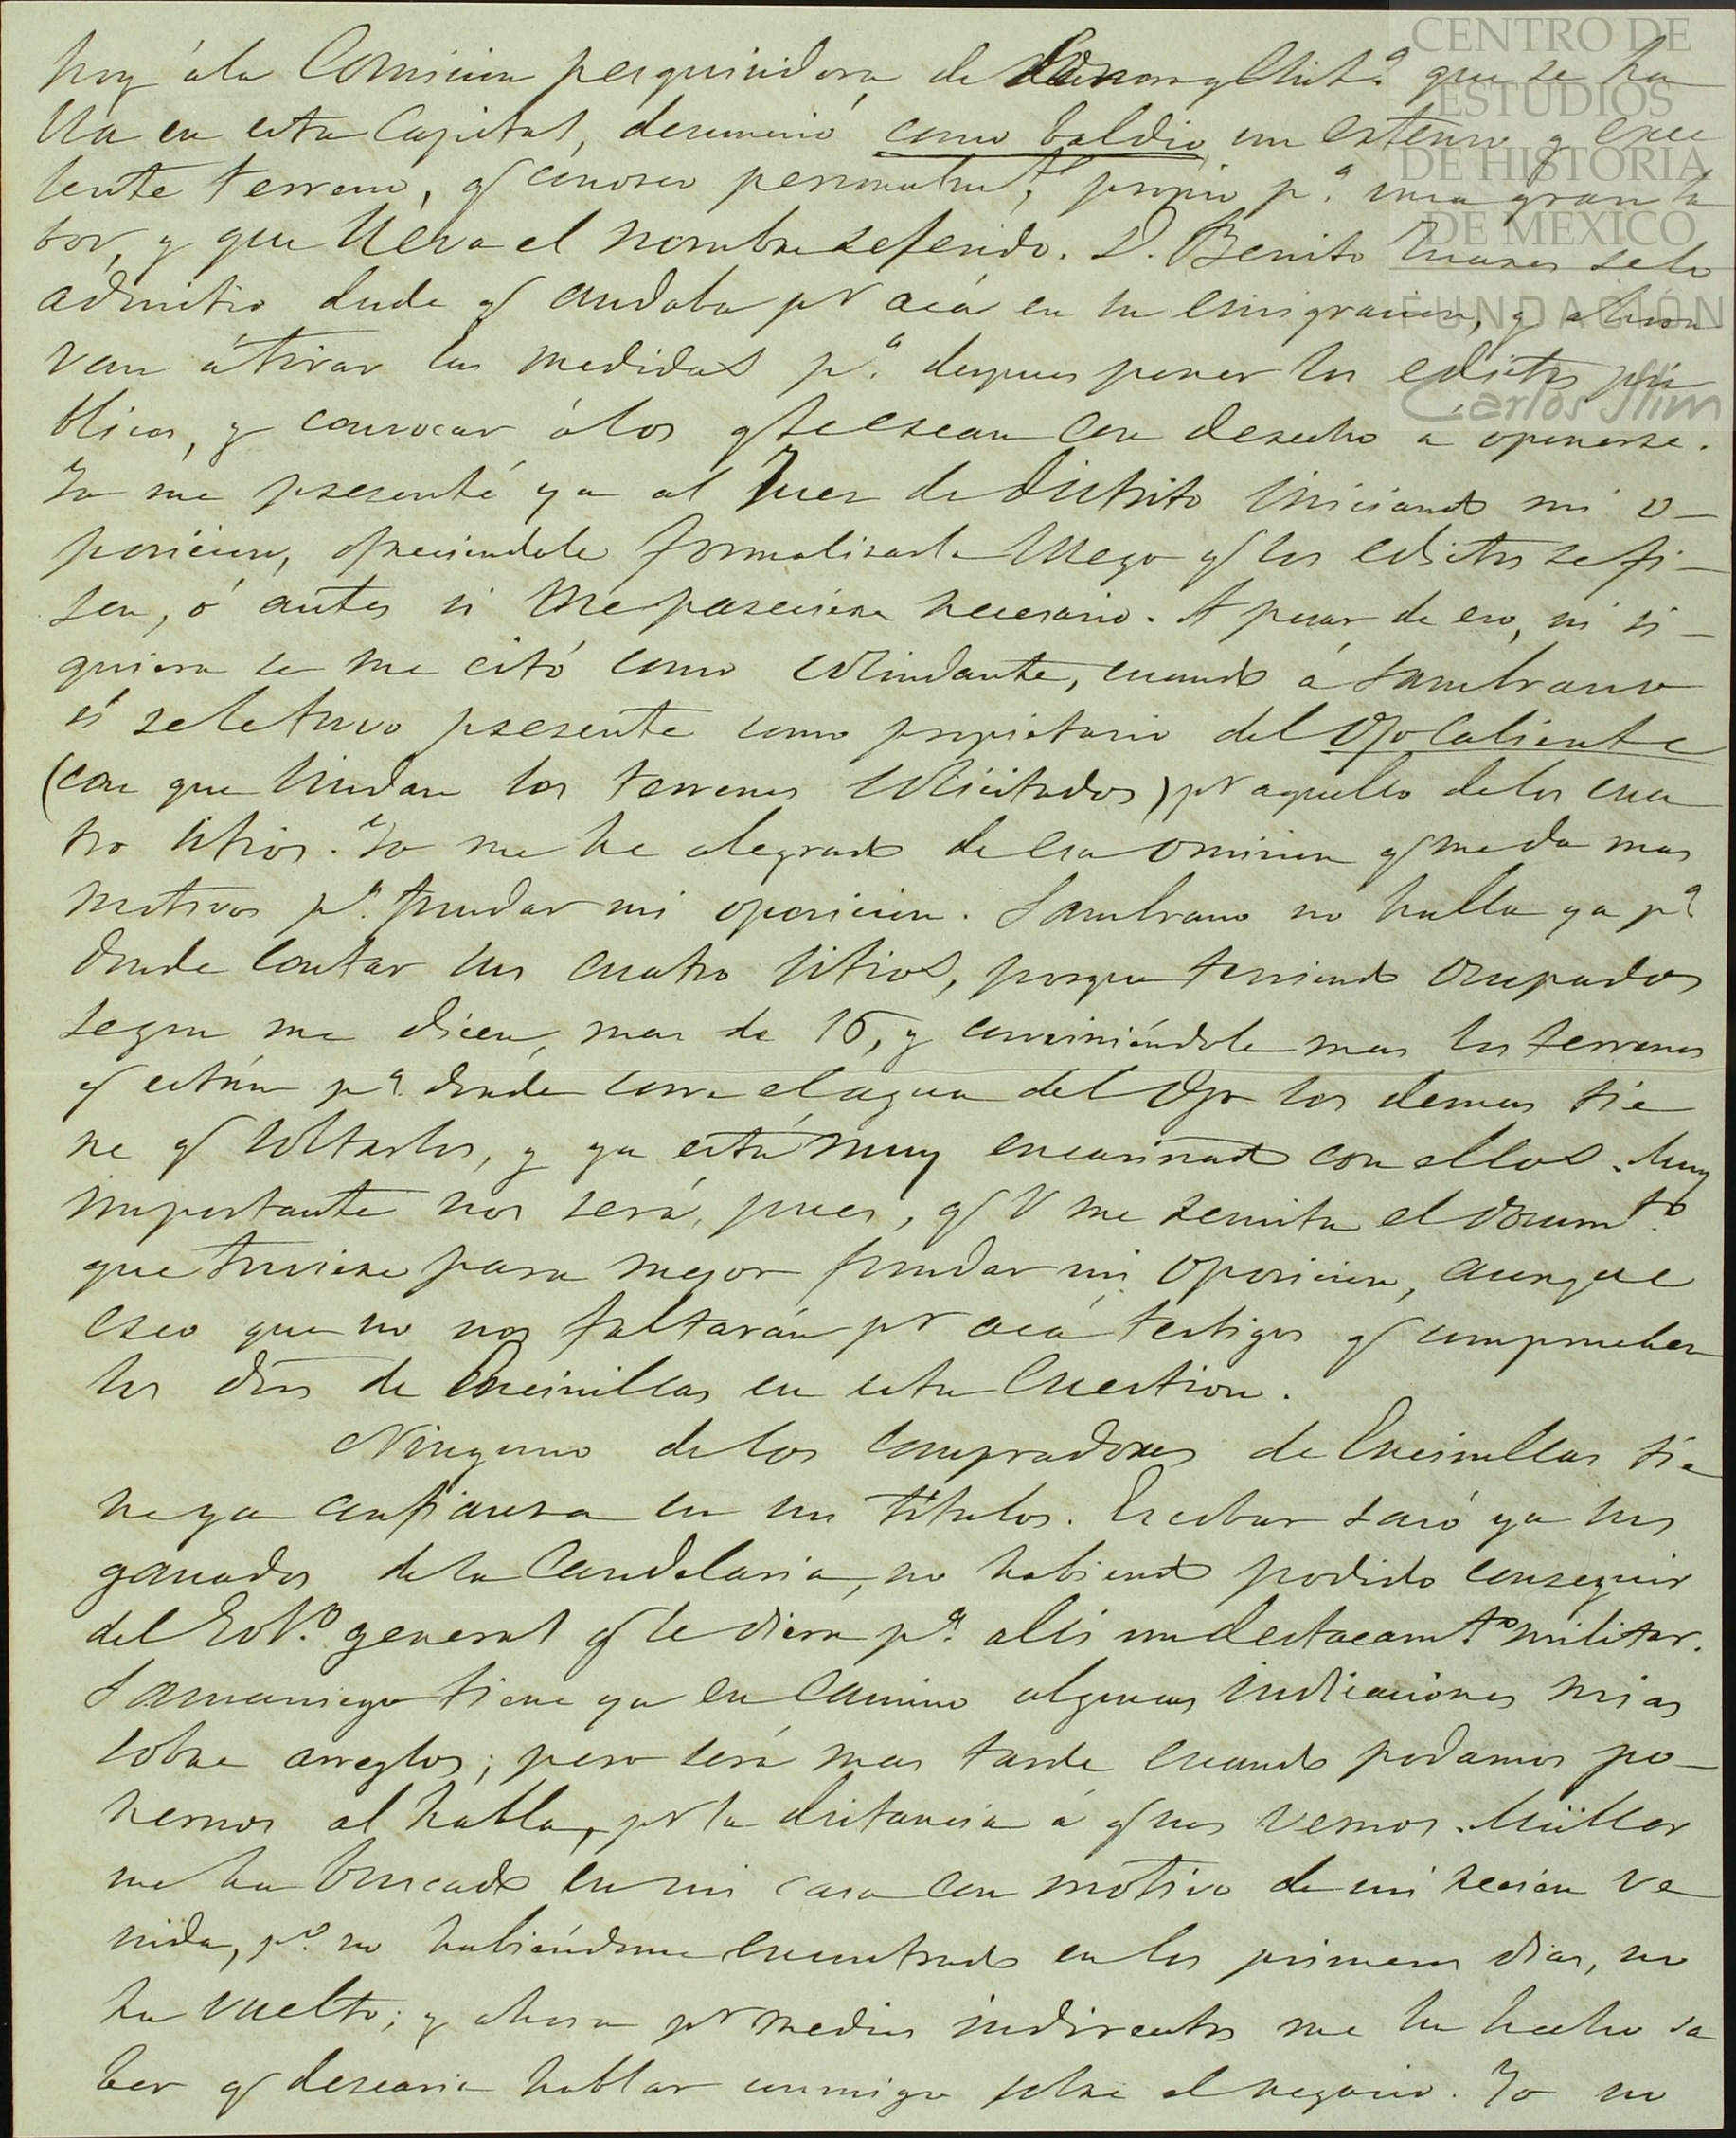 CENTRO DE
ESTUDIOS
DE HISTORIA
DE MEXICO
FUNDACIÓN
Carlos Slim
hoy á la Comision pesquisidora de Sonora y Chih.ª que se ha
lla en esta Capital, denunció como baldio un extenso y exce
lente terreno, q conosco personalmte, propio p.ª una gran la
bor, y que lleva el nombre referido. D. Benito Juares se lo
admitió dude q andaba pr acá en su emigracion, y ahora
van á tirar las medidas p.ª despues poner los edictos pú
blicos, y convocar á los q se crean con derecho a oponerse.
Yo me presenté ya al Jues de Distrito iniciando mi o-
posicion, ofreciendole formalisarla luego q los edictos se fi-
jen, ó antes si me pareciera necesario. A pesar de eso, ni si-
quiera se me citó como colindante, cuando á Sambrano
sí se le tuvo presente como propietario del Ojo Caliente
(con que lindan los terrenos solicitados) pr aquello de los cua
tro sitios. Yo me he alegrado de esa omision q me da mas
motivos p.ª fundar mi oposicion. Sambrano no halla ya p.ª
donde contar sus cuatro sitios, porque teniendo ocupados
segun me dicen, mas de 16, y conviniéndole mas los terrenos
q están p.ª donde corre el agua del Ojo los demas tie
ne q soltarlos, y ya está muy encariñado con ellos. Muy
importante nos será, pues, q V me remita el docum.to
que tuviere para mejor fundar mi oposicion, aunque
creo que no nos faltarán pr acá testigos q comprueben
los dros de Encinillas en esta cuestion.
Ninguno de los compradores de Encinillas tie
ne ya confiansa en sus titulos. Escobar sacó ya sus
ganados de la Candelaria, no habiendo podido conseguir
del Gob.º general q le diera p.ª allí un destacamto militar.
Samaniego tiene ya en camino algunas indicaciones mias
sobre arreglos; pero será mas tarde cuando podamos po-
nernos al habla, pr la distancia á q nos vemos. Müller
me ha buscado en mi casa con motivo de mi recien ve
nida, p.º no habiéndome encontrado en los primeros dias, no
ha vuelto; y ahora pr medios indirectos me ha hecho sa
ber q desearia hablar conmigo sobre el negocio. Yo no